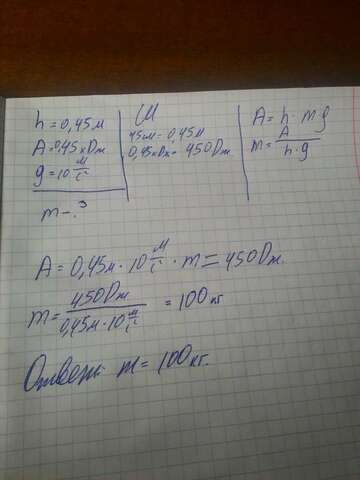 h = 0,45м
A = 0,45кDж
g = 10 м/с²
m - ?
СИ
45см = 0,45м
0,45кDж = 450Dж
A = h · mg
m = A / h·g
A = 0,45м · 10 м/с² · m = 450Dж.
m = 450Dж / 0,45м · 10 м/с² = 100кг
Ответ: m = 100кг.